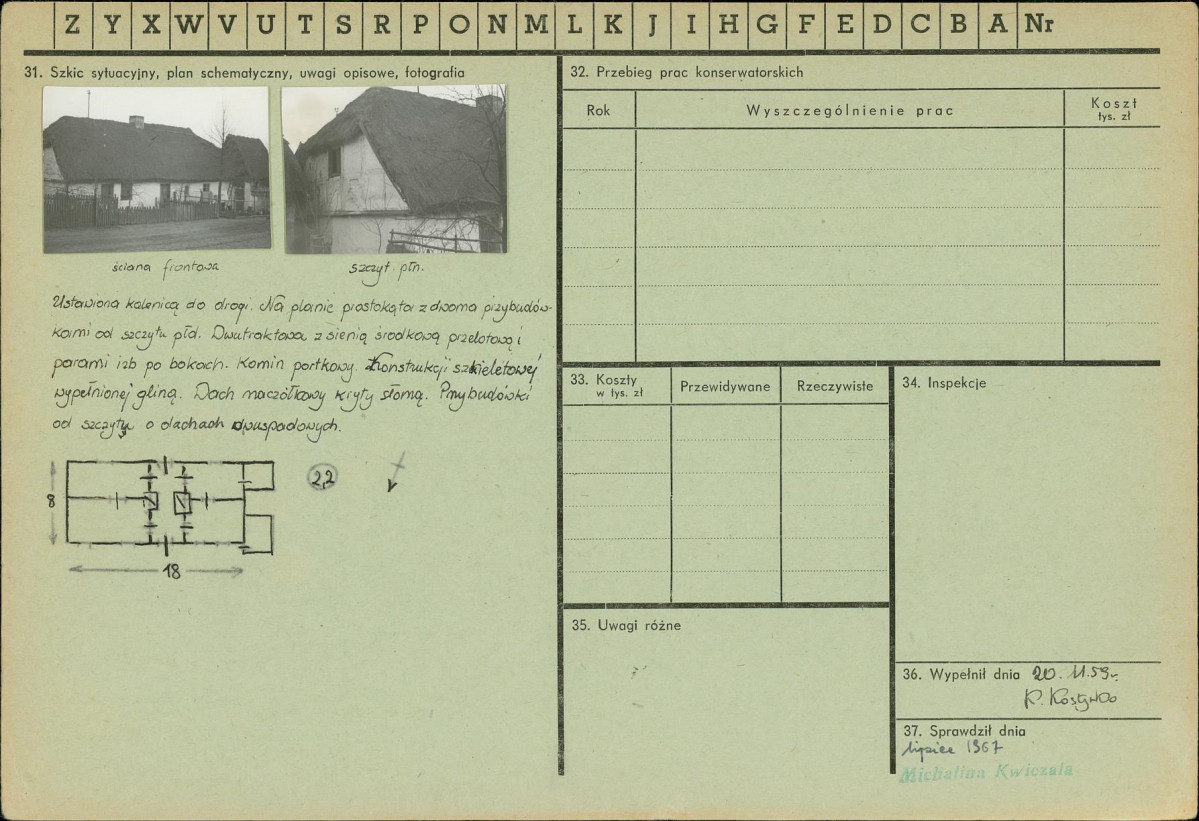 Z Y X W V U T S R P O N M L K J I H G F E D C B A Nr
31. Szkic sytuacyjny, plan schematyczny, uwagi opisowe, fotografia
ściana frontowa
szczyt płn.
Ustawiona kalenicą do drogi. Na planie prostokąta z dwoma przybudów-
kami od szczytu płd. Dwutraktowa z sienią środkową przelotową i
parami izb po bokach. Komin portkowy. Konstrukcji szkieletowej
wypełnionej gliną. Dach naczółkowy kryty słomą. Przybudówki
od szczytu o dachach dwuspadowych.
8
2,2
18
32. Przebieg prac konserwatorskich
Rok
Wyszczególnienie prac
Koszt
tys. zł
33. Koszty
w tys. zł
Przewidywane
Rzeczywiste
34. Inspekcje
35. Uwagi różne
36. Wypełnił dnia 20.11.59r.
37. Sprawdził dnia
lipiec 1967
Michalina Kwiczala